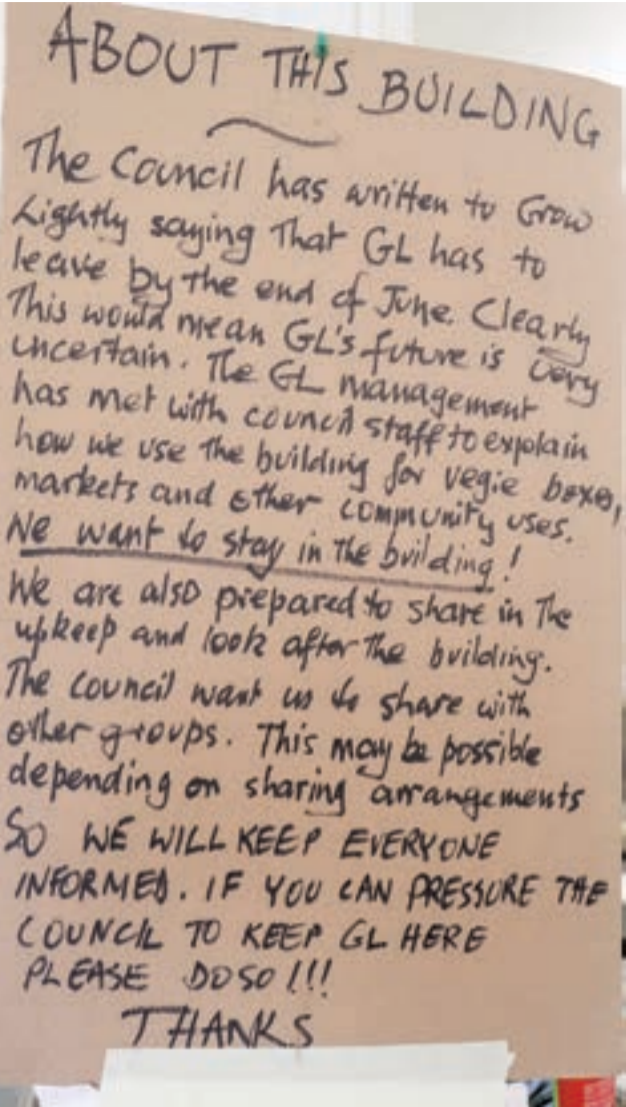 ABOUT THIS BUILDING
The Council has written to Grow
Lightly saying That GL has to
leave by the end of June. Clearly
This would mean GL's future is very
uncertain. The GL management
has met with council staff to explain
how we use the building for vegie boxes,
markets and other community uses.
We want to stay in the building!
We are also prepared to share in the
upkeep and look after the building.
The council want us to share with
other groups. This may be possible
depending on sharing arrangements
SO WE WILL KEEP EVERYONE
INFORMED. IF YOU CAN PRESSURE THE
COUNCIL TO KEEP GL HERE
PLEASE DO SO!!!
THANKS